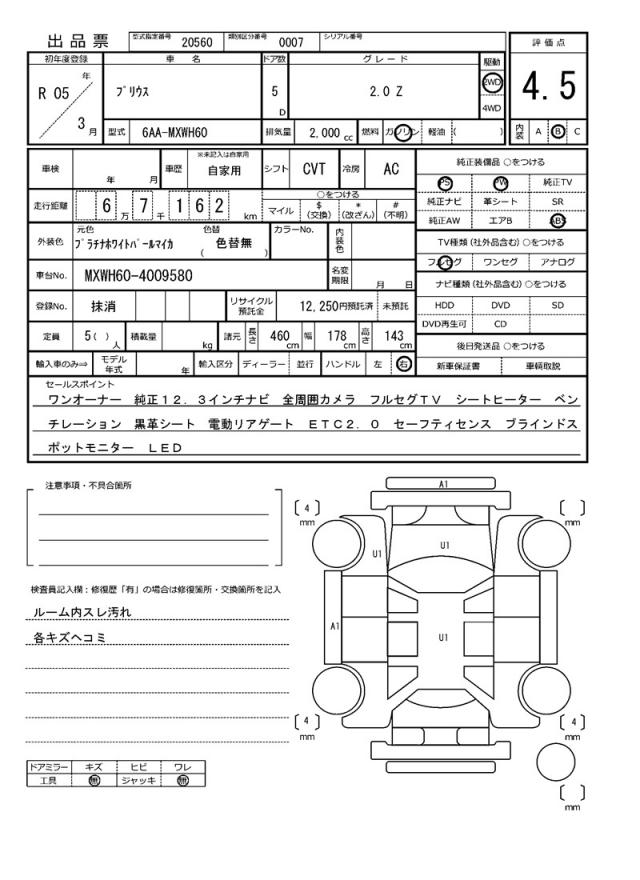 出品票 型式指定番号 20560 類別区分番号 0007 シリアル番号
評価点
4.5
内装 A B C
初年度登録 車名 ドア数 グレード 駆動
R 05 年 3 月
プリウス 5 D 2.0 Z 2WD
4WD
型式 6AA-MXWH60 排気量 2,000 cc 燃料 ガソリン 軽油 ( )
車検 年 月 車歴 ※未記入は自家用 自家用 シフト CVT 冷房 AC
走行距離 6 万 7 千 1 6 2 km
○をつける
マイル $ (交換) * (改ざん) # (不明)
外装色 元色 プラチナホワイトパールマイカ 色替 ( 色替無 ) カラーNo. 内装色
車台No. MXWH60-4009580 名変期限 月 日
登録No. 抹消 リサイクル預託金 12,250円預託済 未預託
定員 5( ) 人 積載量 kg 諸元 長さ 460 cm 幅 178 cm 高さ 143 cm
輸入車のみ⇒ モデル年式 年 輸入区分 ディーラー 並行 ハンドル 左 右
純正装備品 ○をつける
PS PW 純正TV
純正ナビ 革シート SR
純正AW エアB ABS
TV種類 (社外品含む) ○をつける
フルセグ ワンセグ アナログ
ナビ種類 (社外品含む) ○をつける
HDD DVD SD
DVD再生可 CD
後日発送品 ○をつける
新車保証書 車輌取説
セールスポイント
ワンオーナー 純正12.3インチナビ 全周囲カメラ フルセグTV シートヒーター ベン
チレーション 黒革シート 電動リアゲート ETC2.0 セーフティセンス ブラインドス
ポットモニター LED
注意事項・不具合箇所
検査員記入欄:修復歴「有」の場合は修復箇所・交換箇所を記入
ルーム内スレ汚れ
各キズヘコミ
ドアミラー キズ ヒビ ワレ
工具 無 ジャッキ 無
A1
4 mm
mm
U1
U1
A1
U1
4 mm
4 mm
mm